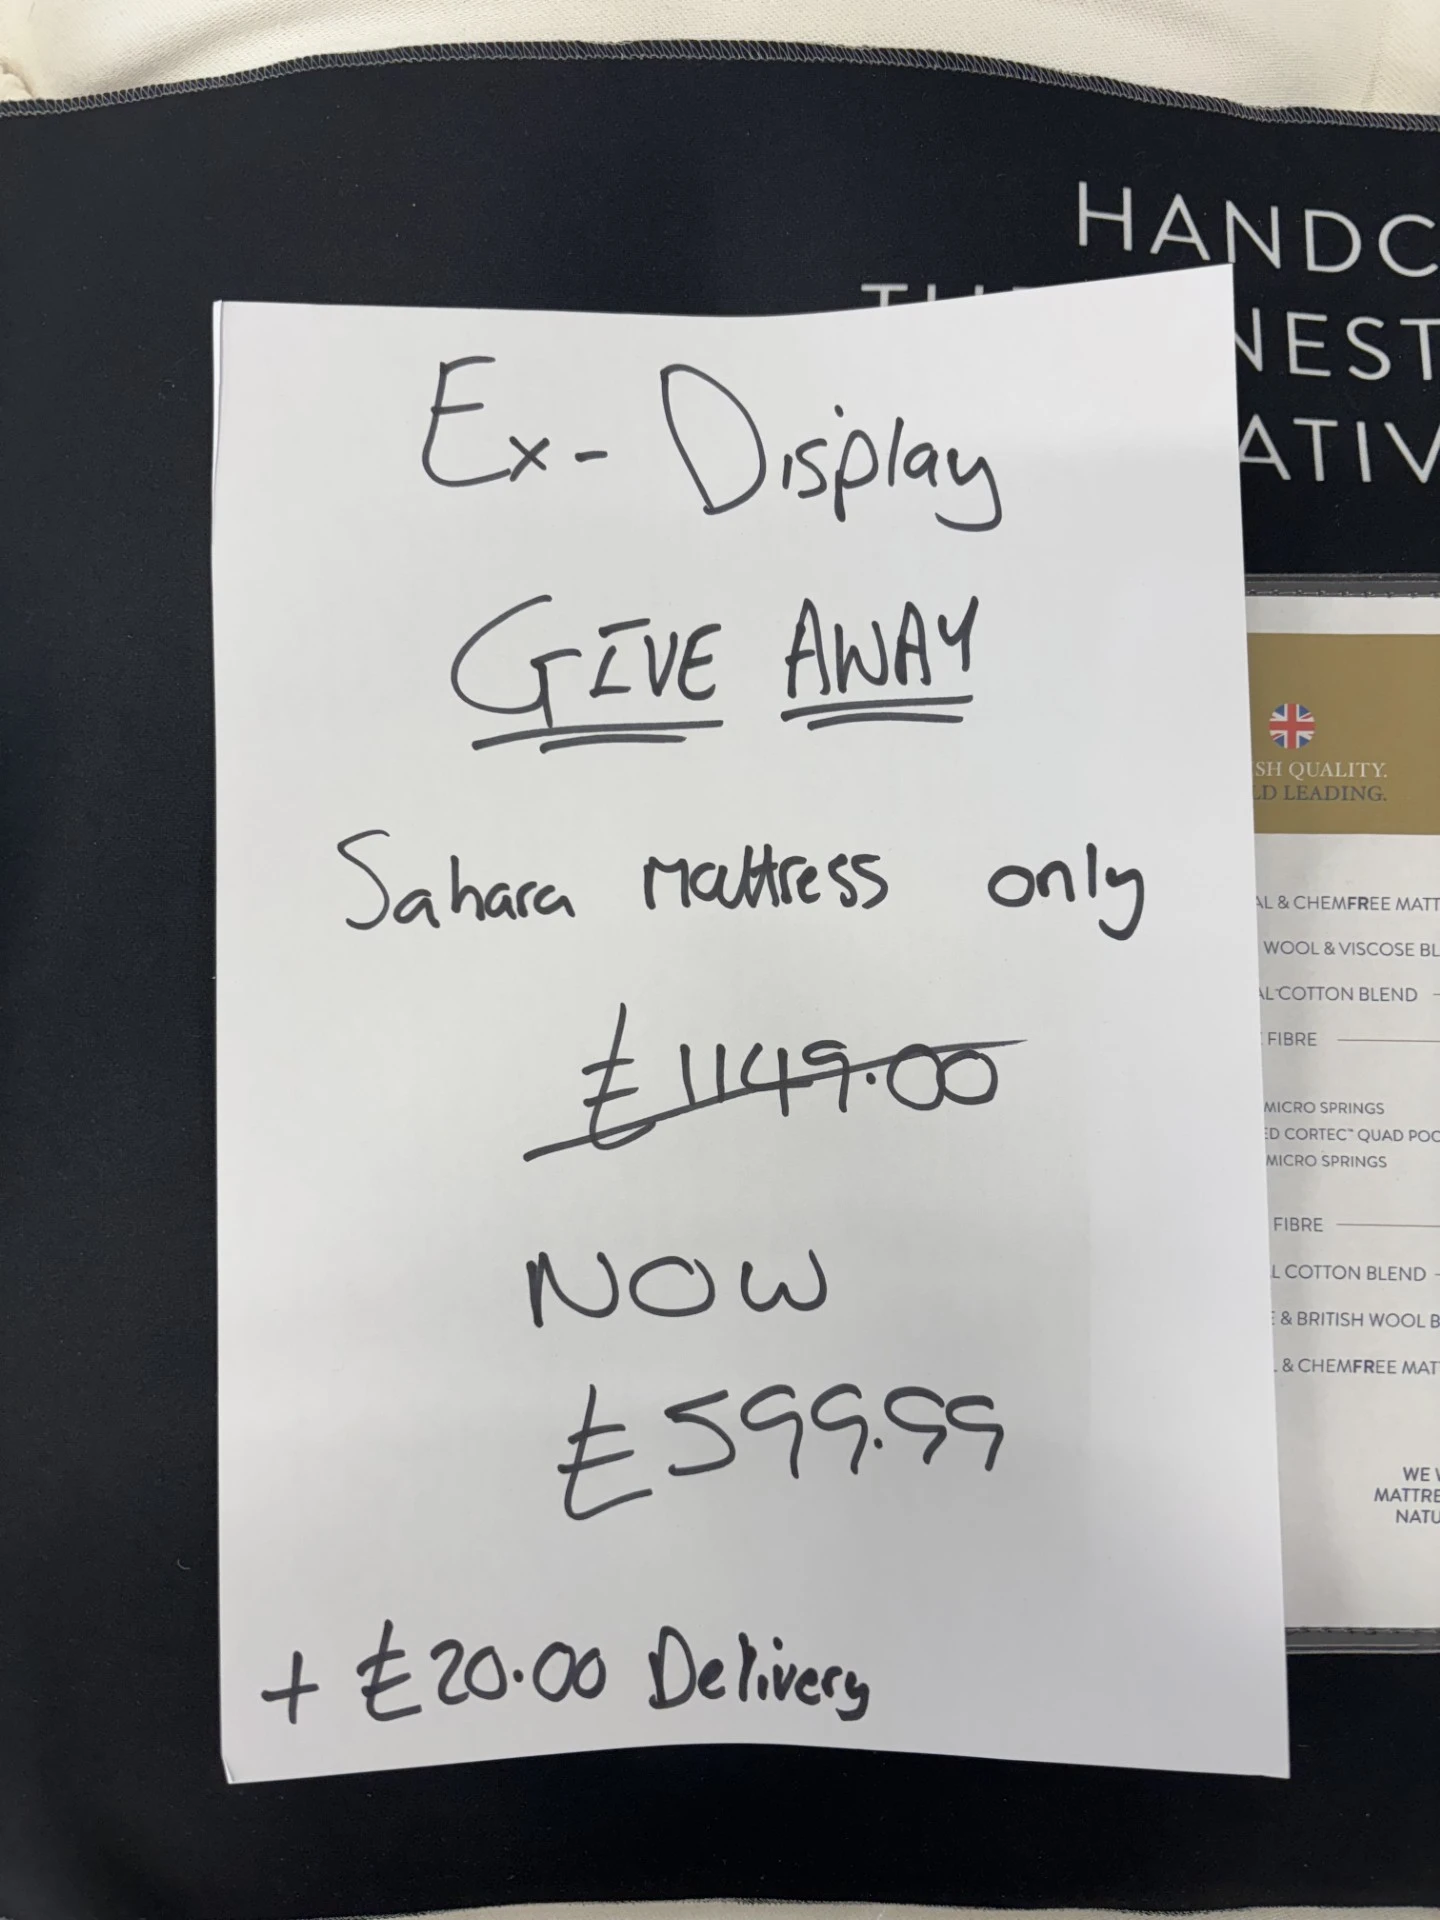 HANDC
NEST
ATIV
Ex-Display
GIVE AWAY
Sahara Mattress only
£1149.00
NOW
£599.99
+ £20.00 Delivery
SH QUALITY.
LD LEADING.
AL & CHEMFREE MATT
WOOL & VISCOSE BL
AL COTTON BLEND
FIBRE
MICRO SPRINGS
ED CORTEC™ QUAD POC
MICRO SPRINGS
FIBRE
L COTTON BLEND
E & BRITISH WOOL B
L & CHEMFREE MAT
WE
MATTRE
NATU